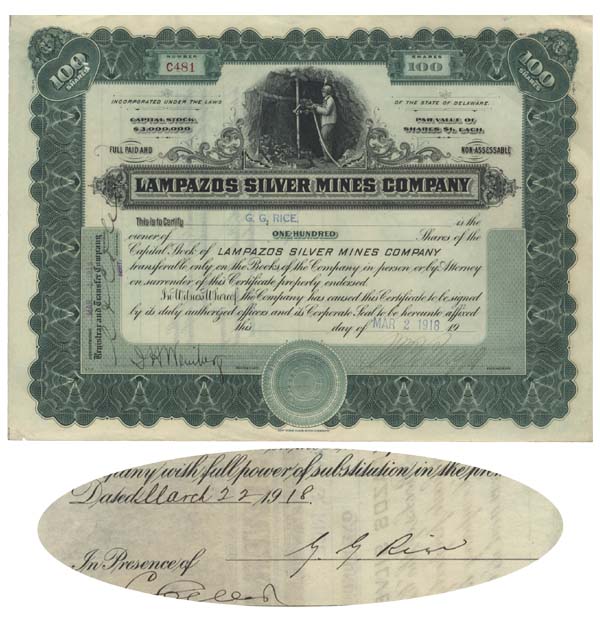 NUMBER
C481
SHARES
100
100
SHARES
100
SHARES
INCORPORATED UNDER THE LAWS
OF THE STATE OF DELAWARE.
CAPITAL STOCK
$3,000,000
PAR VALUE OF
SHARES $1. EACH.
FULL PAID AND
NON-ASSESSABLE
LAMPAZOS SILVER MINES COMPANY
This is to Certify G. G. RICE, is the
owner of ONE HUNDRED Shares of the
Capital Stock of LAMPAZOS SILVER MINES COMPANY
transferable only on the Books of the Company in person or by Attorney
on surrender of this Certificate properly endorsed.
In Witness Whereof, the Company has caused this Certificate to be signed
by its duly authorized officers and its Corporate Seal to be hereunto affixed
this day of MAR 2 1918 19
Registrar and Transfer Company
with full power of substitution in the
Dated March 22 1918.
In Presence of G G Rice